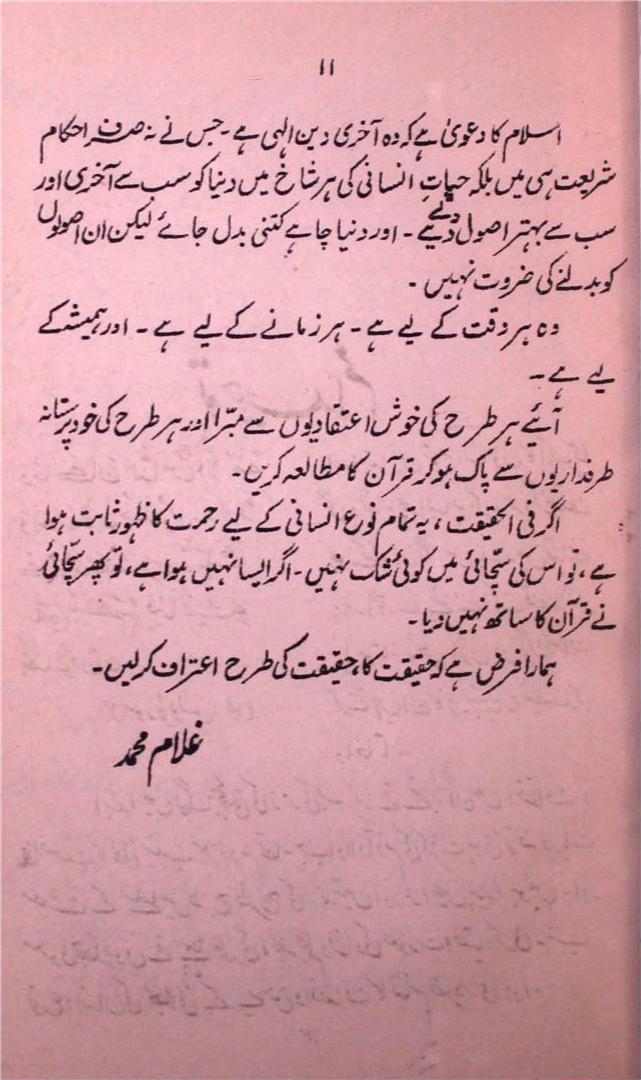 ۱۱
اسلام کا دعویٰ ہے کہ وہ آخری دین الہی ہے ۔ جس نے نہ صرف احکام
شریعت ہی میں بلکہ حیاتِ انسانی کی ہر شاخ میں دنیا کو سب سے آخری اور
سب سے بہتر اصول دئیے ۔ اور دنیا چاہے کتنی بدل جائے لیکن ان اصولوں
کو بدلنے کی ضروت نہیں ۔
وہ ہر وقت کے لیے ہے ۔ ہر زمانے کے لیے ہے ۔ اور ہمیشہ کے
لیے ہے ۔
آئیے ہر طرح کی خوش اعتقادیوں سے مبرّا اور ہر طرح کی خود پرستانہ
طرفداریوں سے پاک ہو کر قرآن کا مطالعہ کریں ۔
اگر فی الحقیقت ، یہ تمام نوع انسانی کے لیے رحمت کا ظہور ثابت ہوا
ہے ، تو اس کی سچّائی میں کوئی شک نہیں ۔ اگر ایسا نہیں ہوا ہے ، تو پھر سچّائی
نے قرآن کا ساتھ نہیں دیا ۔
ہمارا فرض ہے کہ حقیقت کا ، حقیقت کی طرح اعتراف کر لیں ۔
غلام محمد